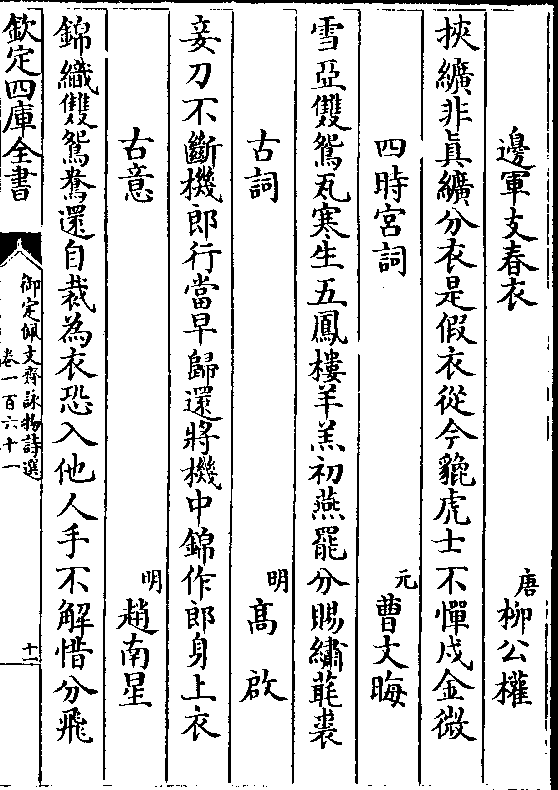 邊軍支春衣 唐柳公權
挾纊非真纊分衣是假衣從今貔虎士不憚戍金微
四時宮詞 元曹文晦
雪亞雙鴛瓦寒生五鳳樓羊羔初燕罷分賜繡茸裘
古詞 明高啟
妾刀不斷機郎行當早歸還將機中錦作郎身上衣
古意 明趙南星
錦織雙鴛鴦還自裁為衣恐入他人手不解惜分飛
欽定四庫全書
御定佩文齋詠物詩選
卷一百六十一
十一